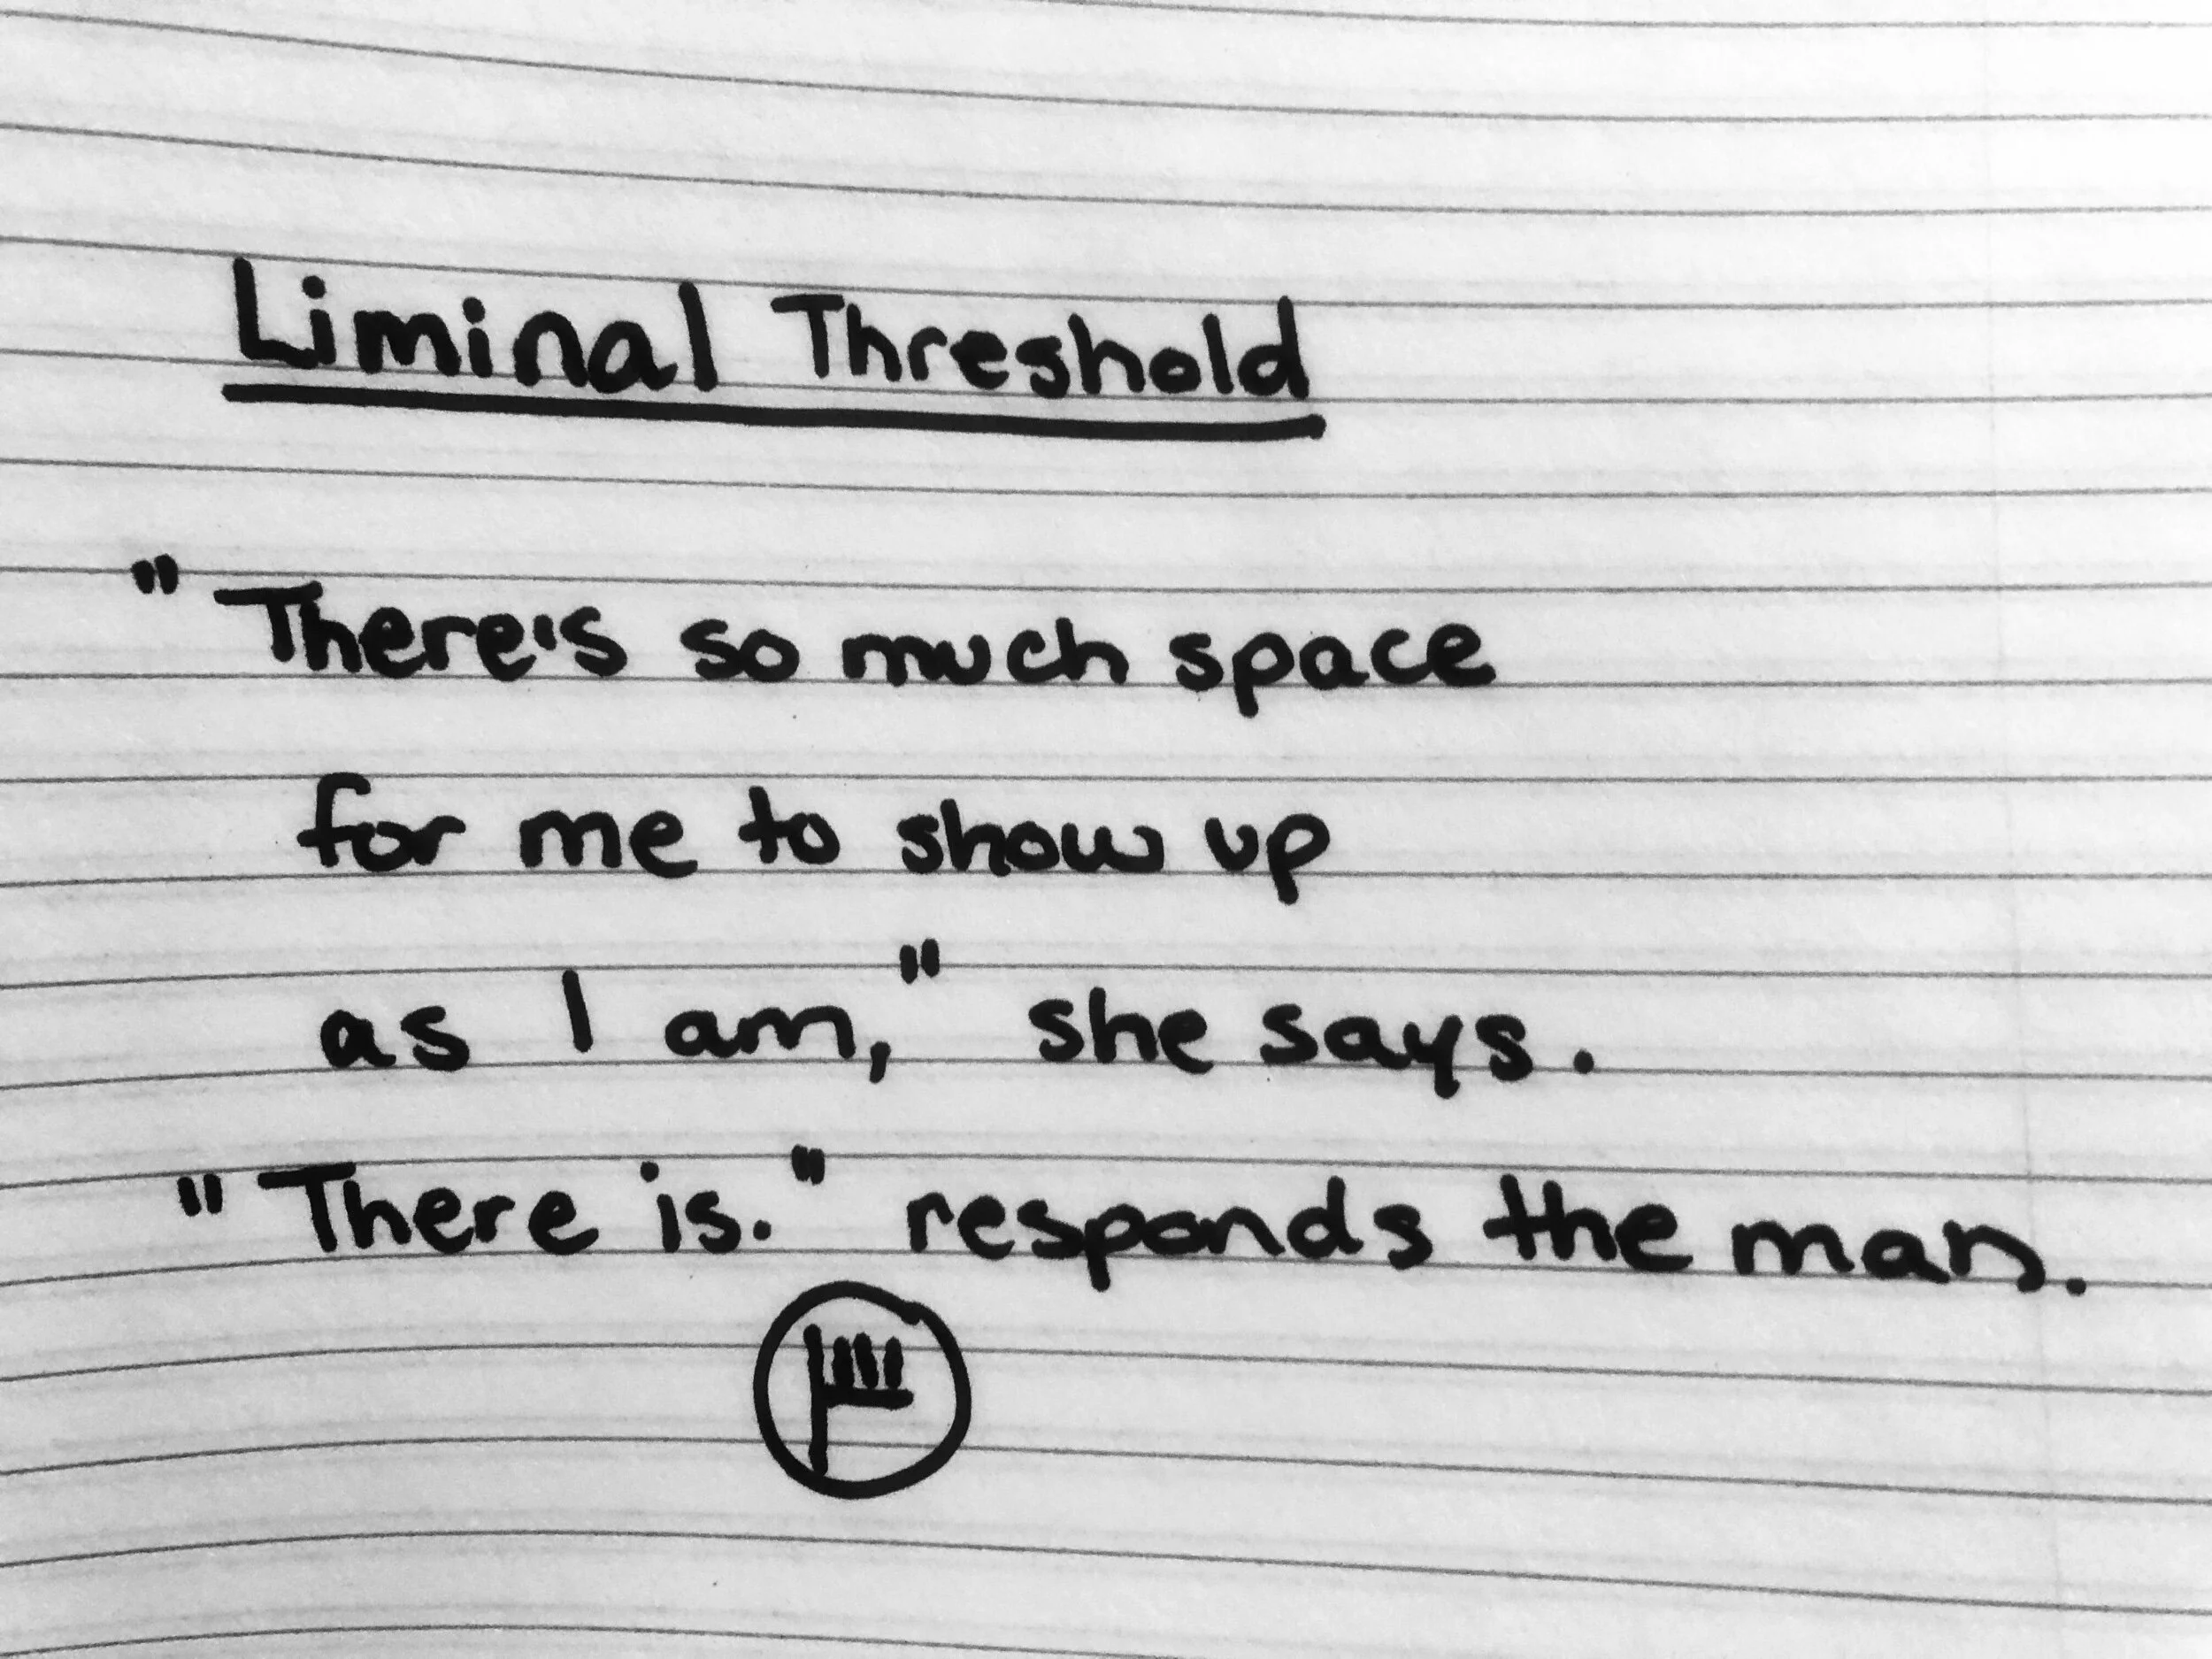 Liminal Threshold
"There's so much space
for me to show up
as I am," she says.
"There is." responds the man.